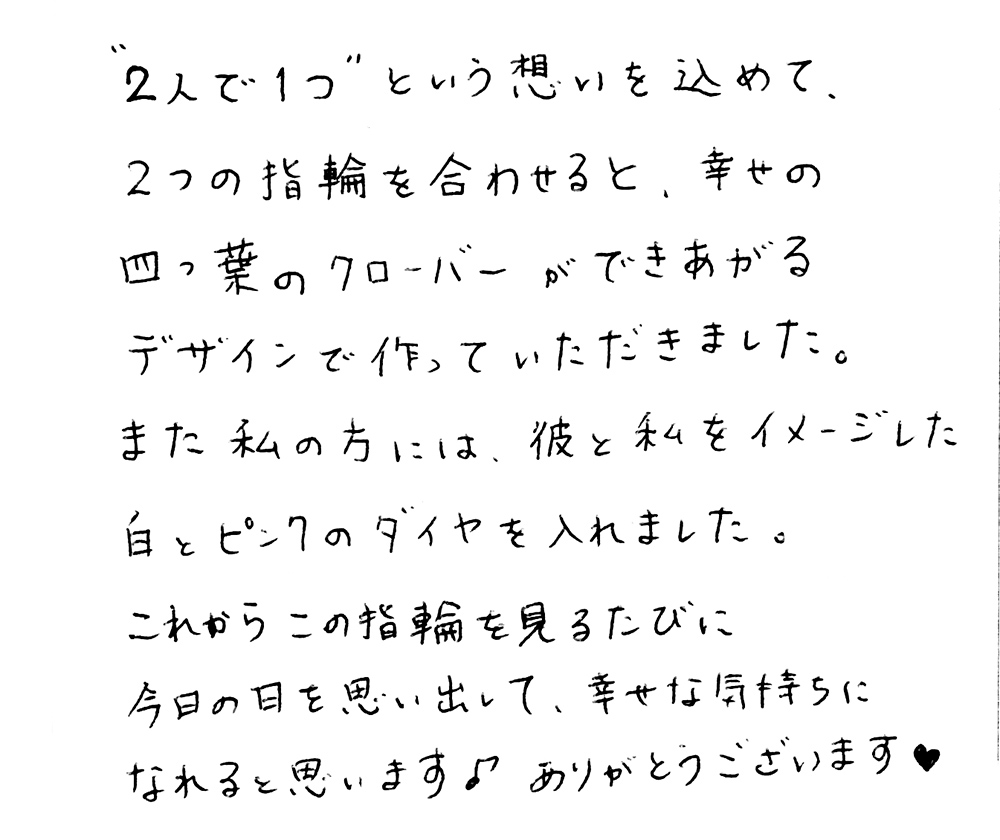 "2人で1つ"という想いを込めて、
2つの指輪を合わせると、幸せの
四つ葉のクローバーができあがる
デザインで作っていただきました。
また私の方には、彼と私をイメージした
白とピンクのダイヤを入れました。
これからこの指輪を見るたびに
今日の日を思い出して、幸せな気持ちに
なれると思います♪ ありがとうございます♥